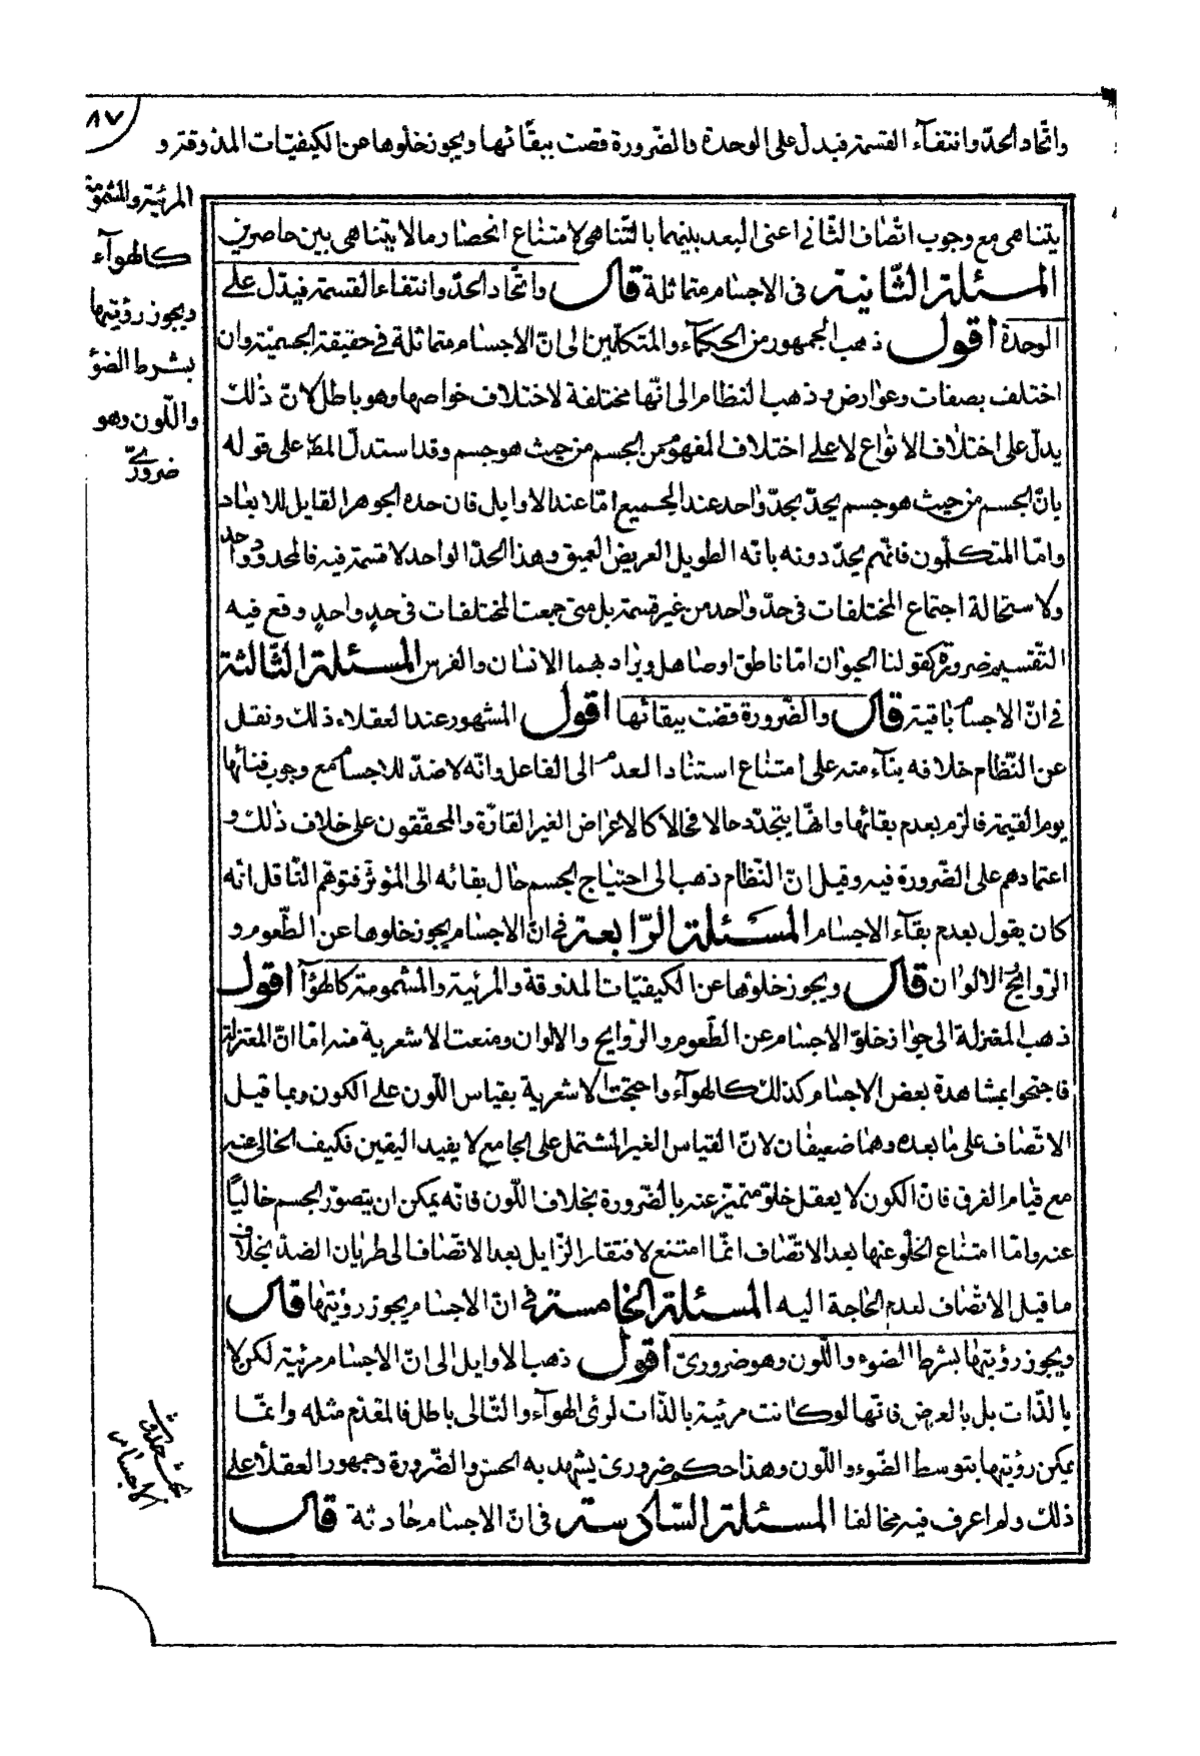 ٨٧
واتّحاد الحدّ وانتفآء القسمة فيه يدلّ على الوحدة والضّرورة قضت ببقآئها ويجوز خلوها عن الكيفيّات المذوقة و
المرئية والمشمومة
كالهوآء
ويجوز رؤيتها
بشرط الضؤ
واللّون وهو
ضروریّ
يتناهى مع وجوب اتّصاف الثّانى اعنى البعد بينهما بالتّناهى لامتناع انحصار مالا يتناهى بين حاصرين
المسئلة الثّانية فى الاجسام متماثلة قال واتّحاد الحدّ وانتفاء القسمة فيه يدلّ على
الوحدة اقول ذهب الجمهور من الحكمآء والمتكلّمين الى انّ الاجسام متماثلة فى حقيقة الجسميّة وان
اختلف بصفات وعوارض وذهب النظام الى انّها مختلفة لاختلاف خواصها وهو باطل لانّ ذلك
يدلّ على اختلاف الانواع لا على اختلاف المفهوم من الجسم من حيث هو جسم وقد استدلّ المصّ على قوله
بانّ الجسم من حيث هو جسم يحدّ بحدّ واحد عند الجميع امّا عند الاوايل فان حده الجوهر القابل للابعاد
وامّا المتكلّمون فانّهم يحدّدونه بانّه الطويل العريض العميق وهذا الحدّ الواحد لا قسمة فيه فالمحدود واحد
ولاستحالة اجتماع المختلفات فى حدّ واحد من غير قسمة بل متى جمعت المختلفات فى حدٍ واحدٍ وقع فيه
التّقسيم ضرورة كقولنا الحيوان امّا ناطق او صاهل ويراد بهما الانسان والفرس المسئلة الثّالثة
فى انّ الاجسام باقية قال والضّرورة قضت ببقائها اقول المشهور عند العقلاء ذلك ونقل
عن النّظام خلافه بنآء منه على امتناع استناد العدم الى الفاعل وانّه لا ضدّ للاجسام مع وجوب فنائها
يوم القيمة فالزم بعدم بقائها وانّها يتجدّد حالا فحالا كالاعراض الغير القارّة والمحقّقون على خلاف ذلك و
اعتمادهم على الضّرورة فيه وقيل انّ النّظام ذهب الى احتياج الجسم حال بقائه الى المؤثّر فتوهّم النّاقل انّه
كان يقول بعدم بقآء الاجسام المسئلة الرّابعة فى انّ الاجسام يجوز خلوها عن الطّعوم و
الرّوايح الالوان قال ويجوز خلوّها عن الكيفيّات المذوقة والمرئية والمشمومة كالهوآء اقول
ذهب المعتزلة الى جواز خلوّ الاجسام عن الطّعوم والرّوايح والالوان ومنعت الاشعرية منه امّا انّ المعتزلة
فاحتجّوا بمشاهدة بعض الاجسام كذلك كالهوآء واحتجّت الاشعرية بقياس اللّون على الكون وبما قبل
الاتّصاف على ما بعده وهما ضعيفان لانّ القياس الغير المشتمل على الجامع لا يفيد اليقين فكيف الخالى عنه
مع قيام الفرق فانّ الكون لا يعقل خلوّ متحيّز عنه بالضّرورة بخلاف اللّون فانّه يمكن ان يتصوّر الجسم خالياً
عنه وامّا امتناع الخلوّ عنها بعد الاتّصاف انّما امتنع لافتقار الزّايل بعد الاتّصاف الى طريان الضدّ بخلاف
ما قبل الاتّصاف لعدم الحاجة اليه المسئلة الخامسة فى انّ الاجسام يجوز رؤيتها قال
ويجوز رؤيتها بشرط الضوء واللّون وهو ضرورىّ اقول ذهب الاوايل الى انّ الاجسام مرئية لكن لا
بالذّات بل بالعرض فانّها لو كانت مرئية بالذّات لرئى الهوآء والتّالى باطل فالمقدّم مثله وانّما
يمكن رؤيتها بتوسط الضّوء واللّون وهذا حكم ضرورى يشهد به الحسّ والضّرورة وجمهور العقلآء على
ذلك ولم اعرف فيه مخالفا المسئلة السّادسة فى انّ الاجسام حادثة قال
بحث حدوث
الاجسام